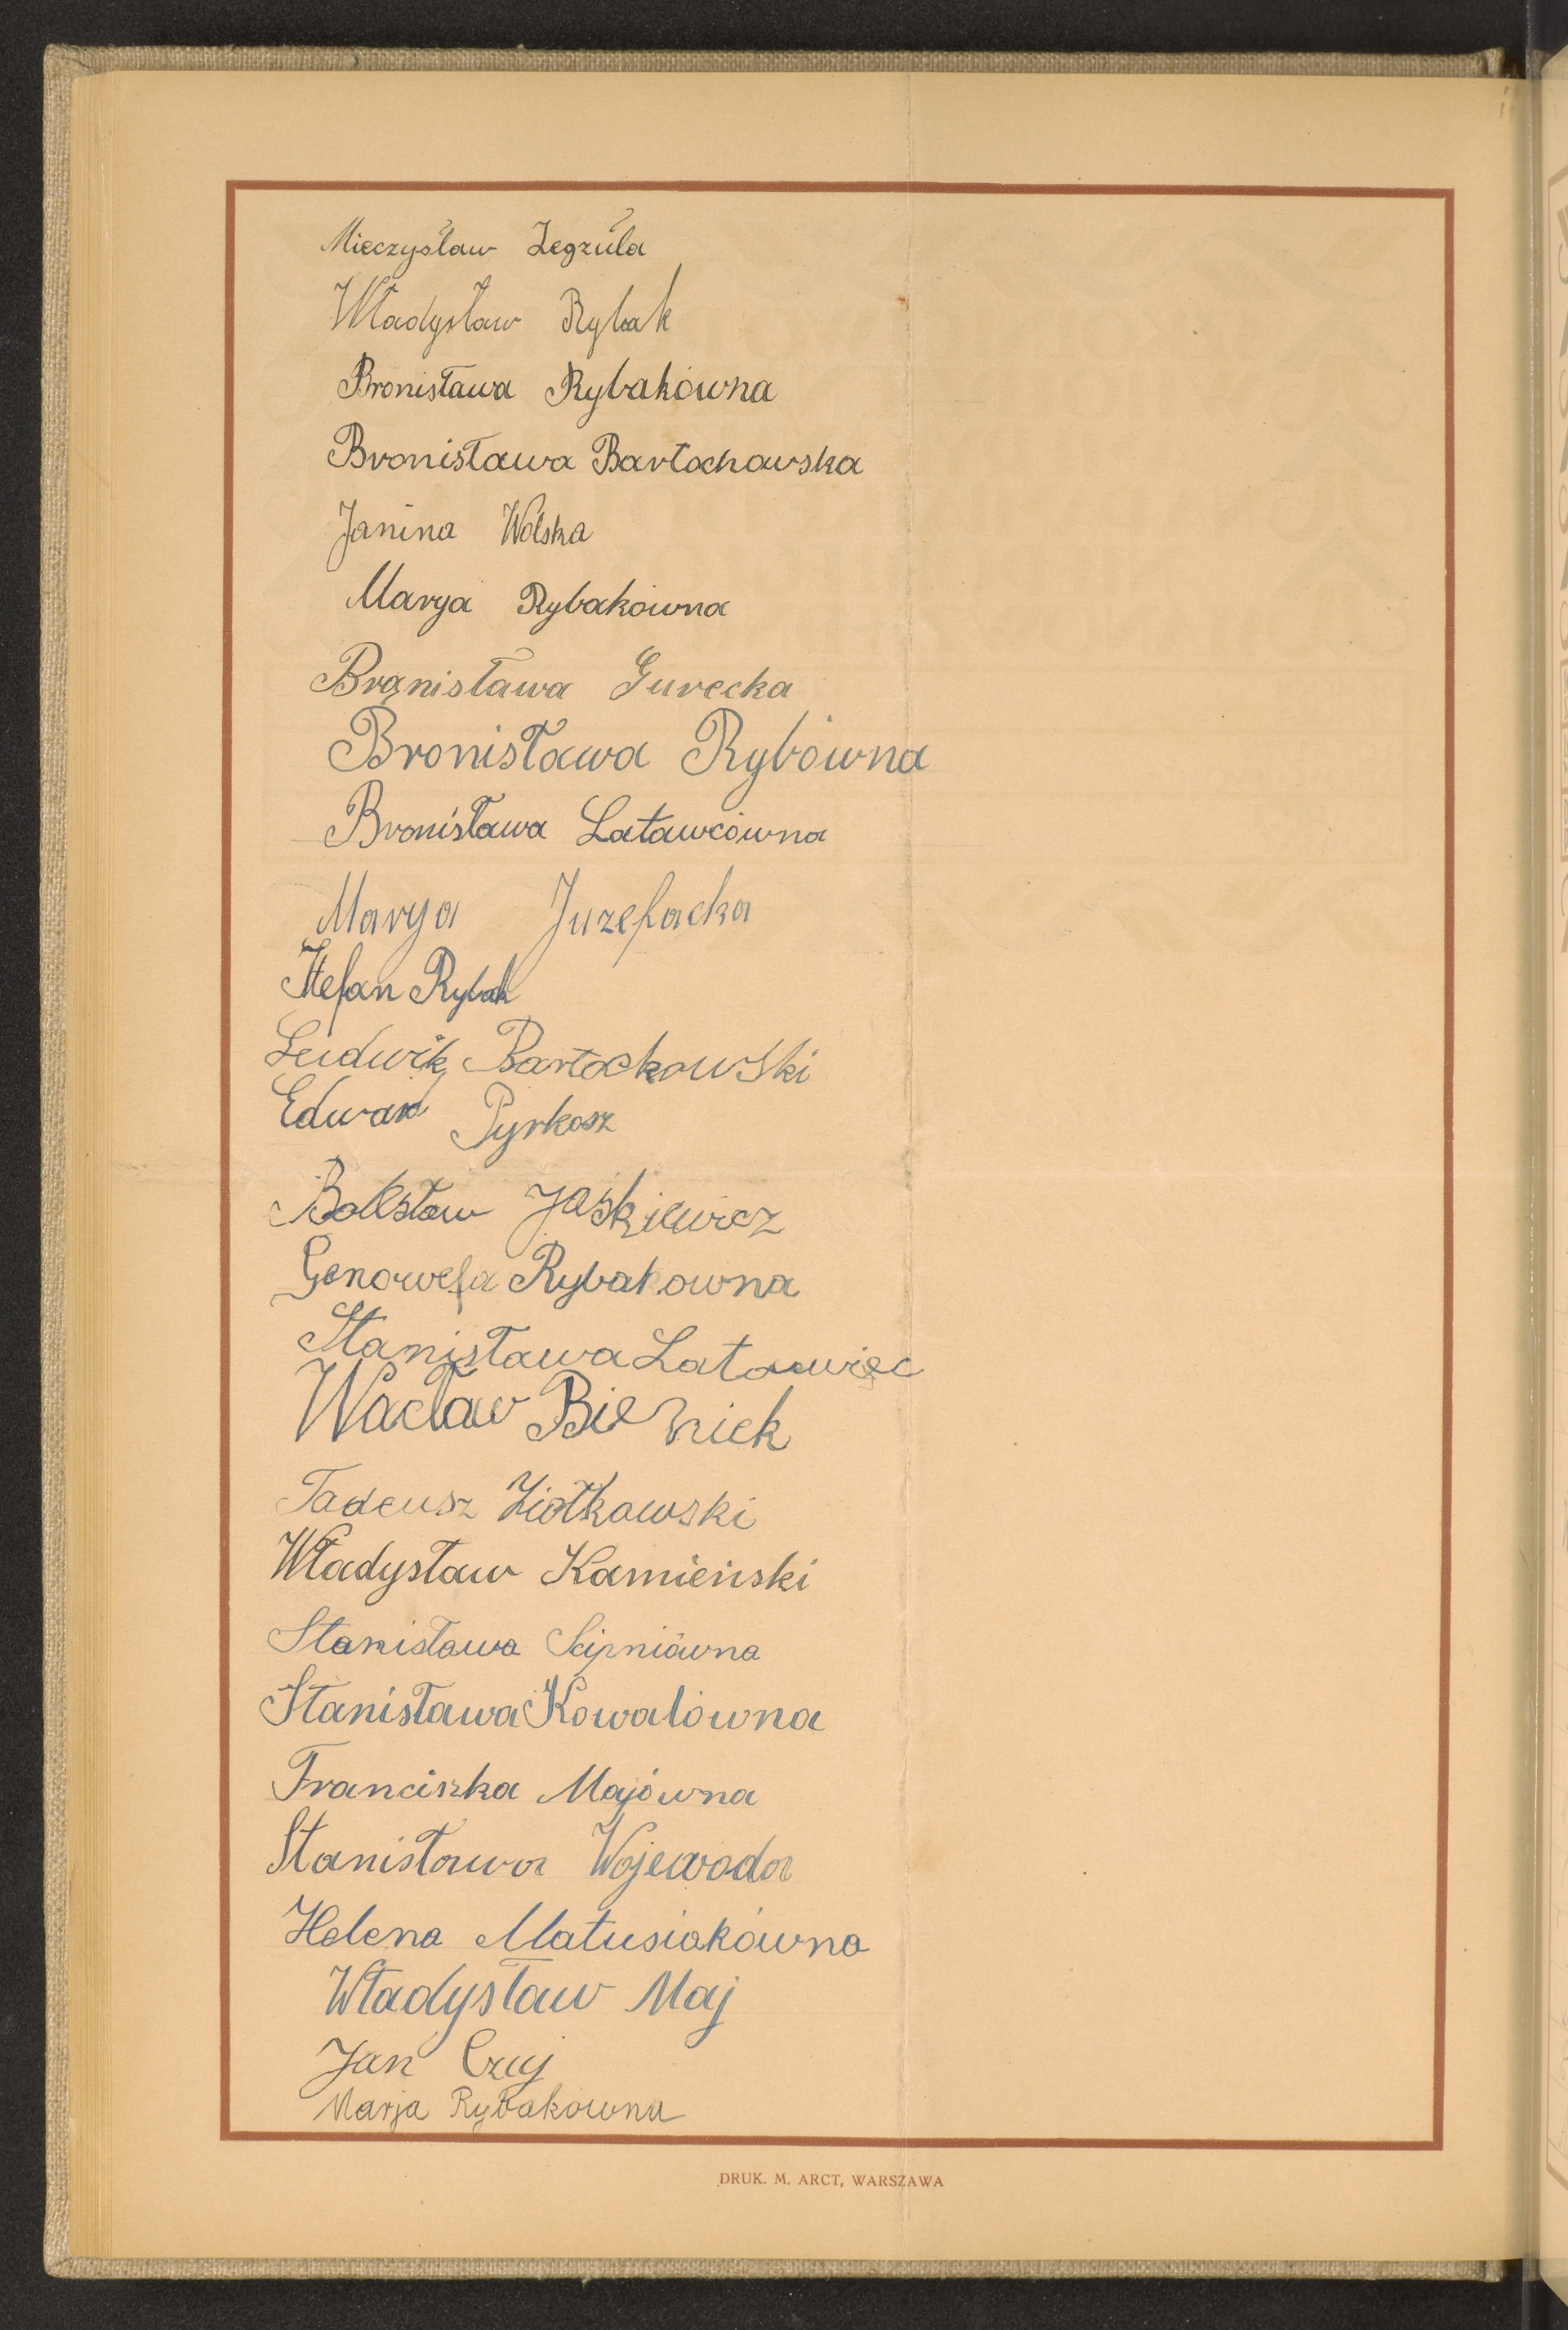 Mieczysław Zegzuła
Władysław Rybak
Bronisława Rybakówna
Bronisława Bartochowska
Janina Wolska
Marya Rybakówna
Bronisława Gurecka
Bronisława Rybówna
Bronisława Latawcówna
Marya Juzefacka
Stefan Rybak
Ludwik Bartochowski
Edward Pyrkosz
Bolesław Jaśkiewicz
Genowefa Rybakowna
Stanisława Latawiec
Wacław Bieniek
Tadeusz Ziółkowski
Władysław Kamieński
Stanisława
Stanisława Kowalówna
Franciszka Majówna
Stanisława Wojewoda
Helena Matusiakówna
Władysław Maj
Jan Czuj
Marja Rybakowna
DRUK. M. ARCT, WARSZAWA